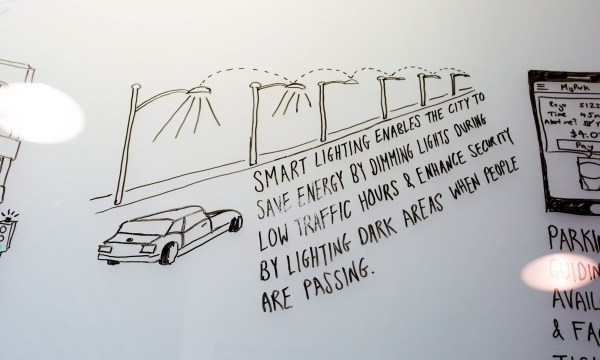 SMART LIGHTING ENABLES THE CITY TO
SAVE ENERGY BY DIMMING LIGHTS DURING
LOW TRAFFIC HOURS & ENHANCE SECURITY
BY LIGHTING DARK AREAS WHEN PEOPLE
ARE PASSING.
MyPark
Time
Pay
PARKIN
GUIDIN
AVAIL
& FA